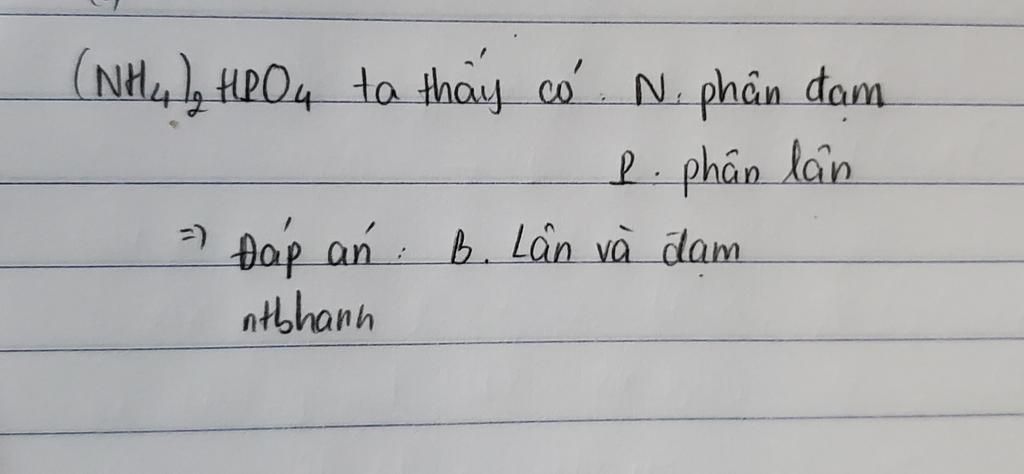 (NH₄)₂HPO₄ ta thấy có: N: phân đạm
P: phân lân
=> Đáp án: B. Lân và đạm
ntbhanh